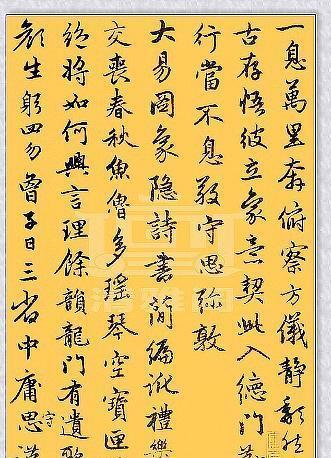 一息萬里奔俯察方儀靜頹然
古存悟彼立象意契此入德門
行當不息敬守思弥敦
大易圖象隐詩書簡編訛禮樂
交喪春秋魚魯多瑶琴空寶匣
絕將如何興言理餘韻龍門有遺歌
顏生躬四勿曾子日三省中庸思